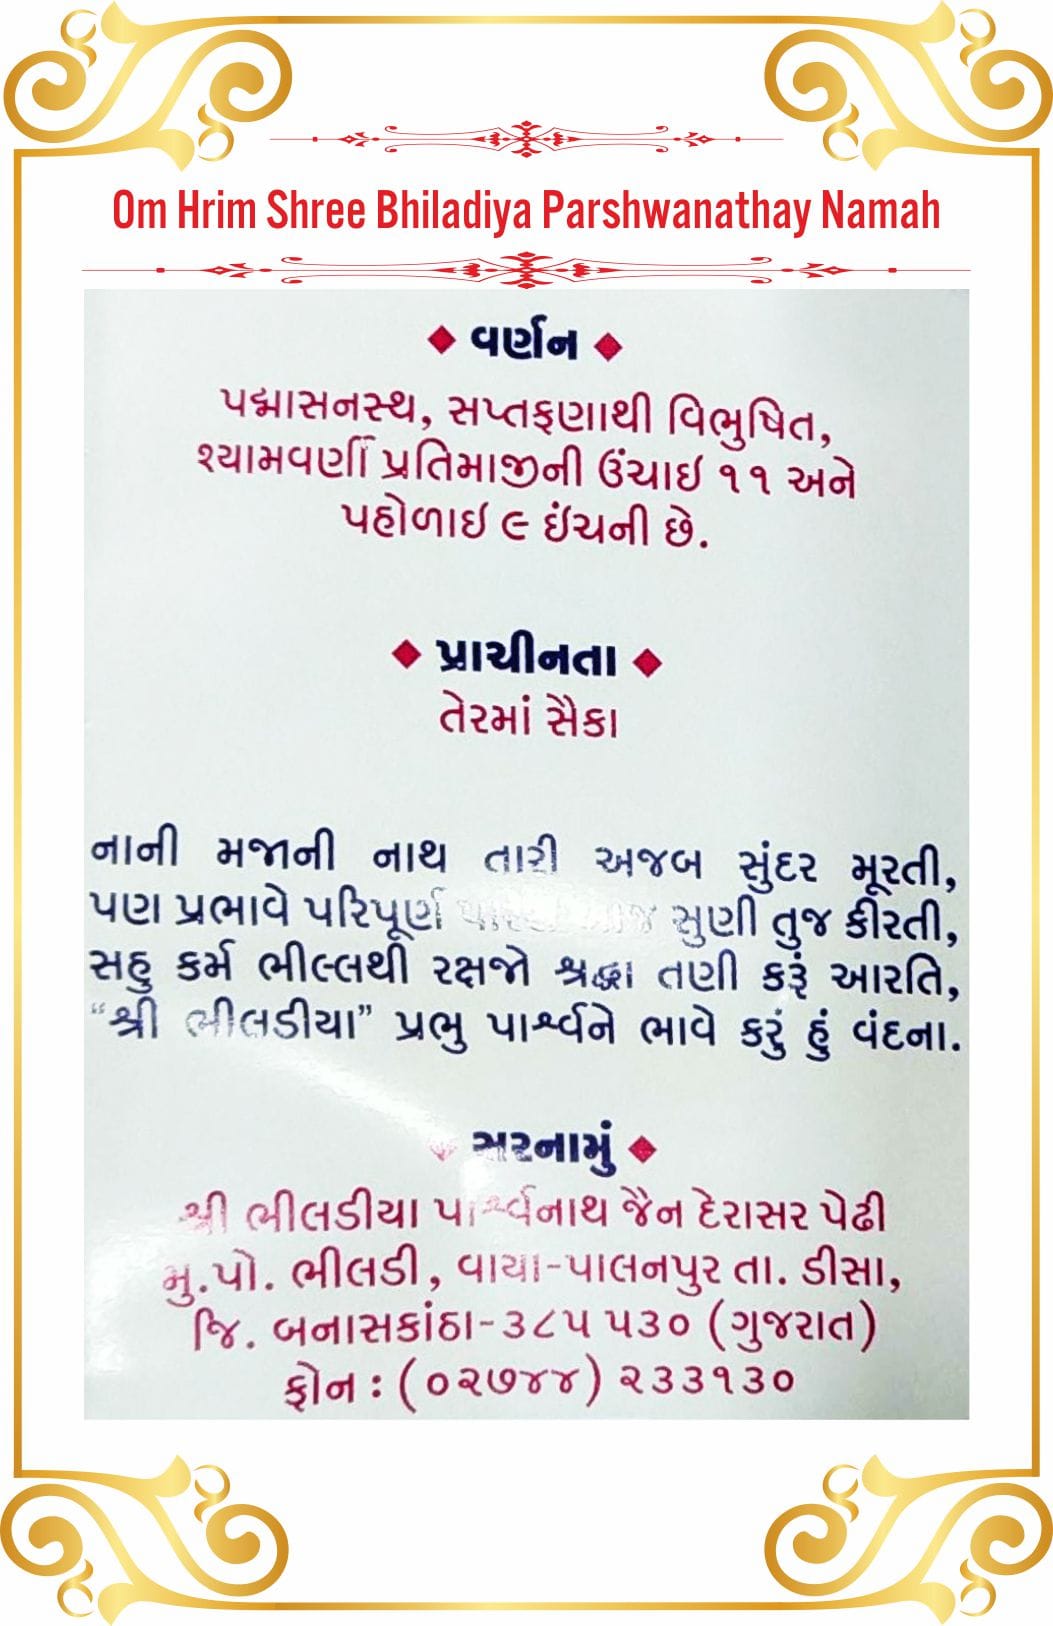 Om Hrim Shree Bhiladiya Parshwanathay Namah
વર્ણન
પદ્માસનસ્થ, સપ્તફણાથી વિભુષિત,
શ્યામવર્ણી પ્રતિમાજીની ઉંચાઇ ૧૧ અને
પહોળાઇ ૯ ઇંચની છે.
પ્રાચીનતા
તેરમાં સૈકા
નાની મજાની નાથ તારી અજબ સુંદર મૂરતી,
પણ પ્રભાવે પરિપૂર્ણ સુણી તુજ કીરતી,
સહુ કર્મ ભીલ્લથી રક્ષજો શ્રદ્ધા તણી કરૂં આરતિ,
“શ્રી ભીલડીયા” પ્રભુ પાર્શ્વને ભાવે કરું હું વંદના.
સરનામું
શ્રી ભીલડીયા પાર્શ્વનાથ જૈન દેરાસર પેઢી
મુ.પો. ભીલડી, વાયા-પાલનપુર તા. ડીસા,
જિ. બનાસકાંઠા-૩૮૫ ૫૩૦ (ગુજરાત)
ફોન : (૦૨૭૪૪) ૨૩૩૧૩૦